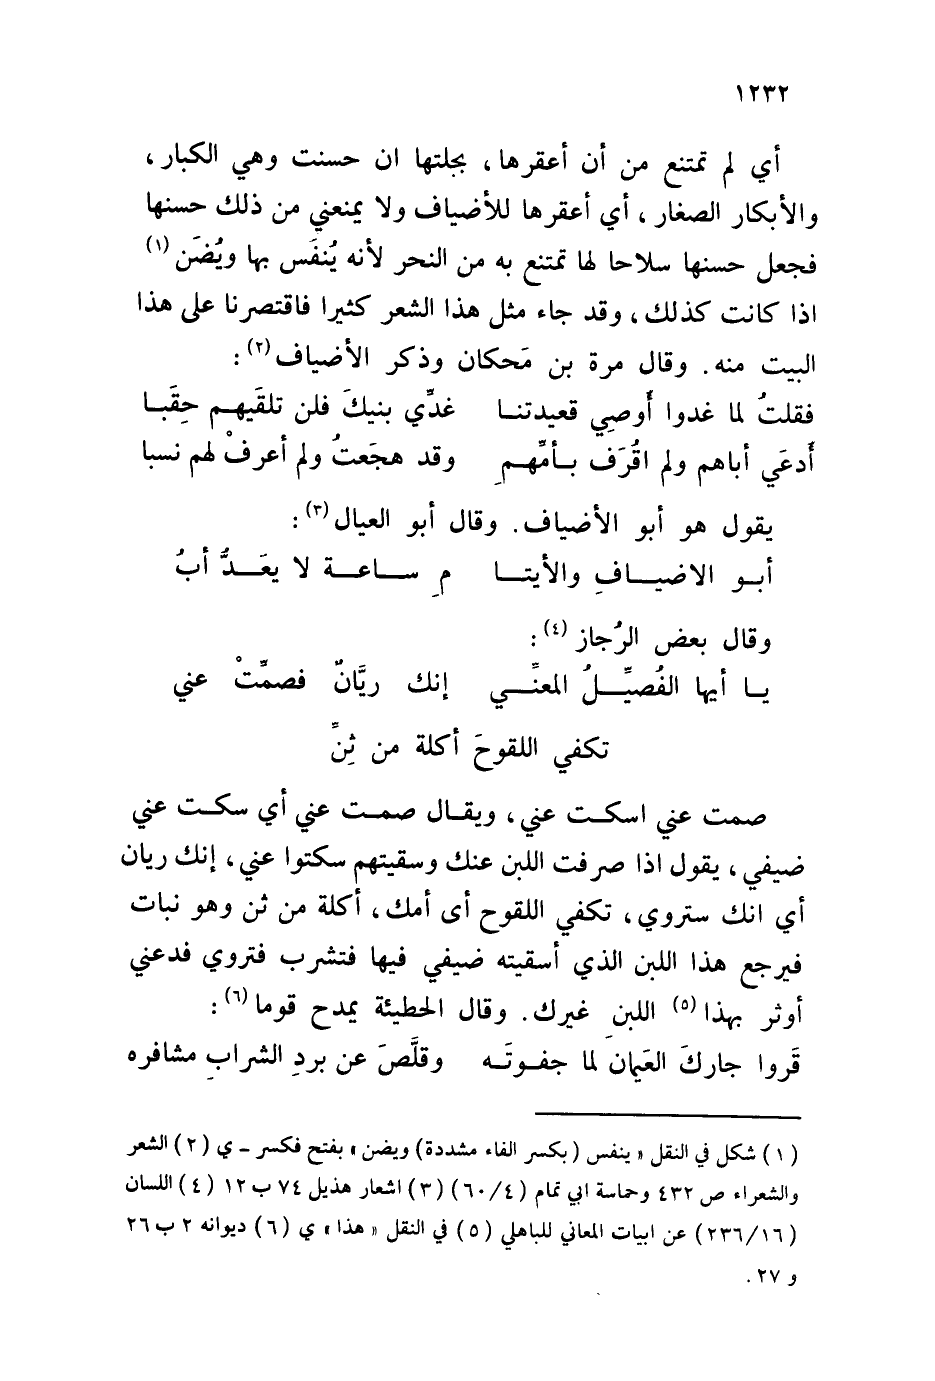 ١٢٣٢
أي لم تمتنع من أن أعقرها، بجلتها ان حسنت وهي الكبار،
والأبكار الصغار، أي أعقرها للأضياف ولا يمنعني من ذلك حسنها
فجعل حسنها سلاحا لها تمتنع به من النحر لأنه يُنفَس بها ويُضَن (١)
اذا كانت كذلك، وقد جاء مثل هذا الشعر كثيرا فاقتصرنا على هذا
البيت منه. وقال مرة بن مَحكان وذكر الأضياف (٢):
فقلتُ لما غدوا أُوصِي قعيدتنـا غدِّي بنيكَ فلن تلقَيهـم حِقَبـا
أُدعَى أباهم ولم اقُرَف بـأمِّهـمِ وقد هجَعتُ ولم أعرفْ لهم نسبا
يقول هو أبو الأضياف. وقال أبو العيال (٣):
أبـو الاضيـــافِ والأيتـــا مِ ســاعـــة لا يعَـــدُّ أبُ
وقال بعض الرُجاز (٤):
يـا أيها الفُصيِّــلُ المعنِّـــي إنك ريَّانٌ فصمِّتْ عني
تكفي اللقوحَ أكلة من ثِنِّ
صمت عني اسكـت عني، ويقـال صمـت عني أي سكـت عني
ضيفي، يقول اذا صرفت اللبن عنك وسقيتهم سكتوا عني، إنك ريان
أي انك ستروي، تكفي اللقوح أى أمك، أكلة من ثن وهو نبات
فيرجع هذا اللبن الذي أسقيته ضيفي فيها فتشرب فتروي فدعني
أوثر بهذا (٥) اللبنِ غيرك. وقال الحطيئة يمدح قوما (٦):
قَروا جاركَ العَيمان لما جفـوتَـه وقلَّصَ عن بردِ الشرابِ مشافره
(١) شكل في النقل « ينفس (بكسر الفاء مشددة) ويضن » بفتح فكسر ـ ي (٢) الشعر
والشعراء ص ٤٣٢ وحماسة ابي تمام (٤/٦٠) (٣) اشعار هذيل ٧٤ ب ١٢ (٤) اللسان
(١٦/٢٣٦) عن ابيات المعاني للباهلي (٥) في النقل « هذا » ي (٦) ديوانه ٢ ب ٢٦
و ٢٧.